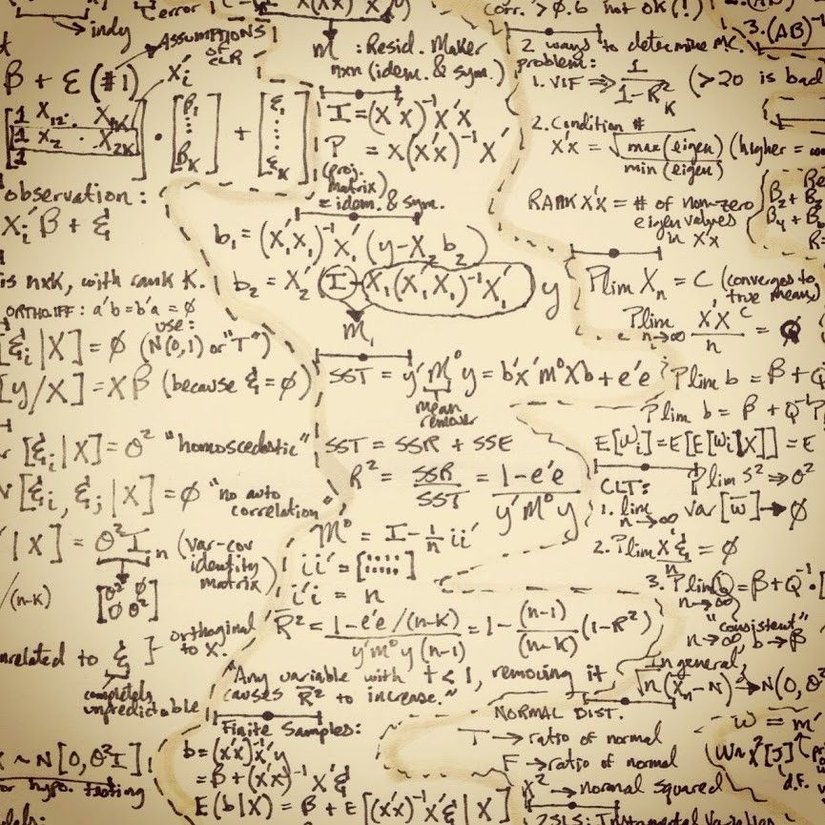 error
→ indy
ASSUMPTIONS
OF
CLR
β + ε (#1)
Xi'
observation:
Xi'β + ε
is nxk, with rank K.
ORTHO. IFF: a'b = b'a = ∅
use:
[εi|X] = ∅ (N(0,1) or "T")
[y/X] = Xβ (because ε = ∅)
[εi|X] = σ² "homoscedastic"
[εi, εj|X] = ∅ "no auto
correlation"
'|X] = σ²I n (var-cov
identity
matrix)
[σ² ∅
∅ σ²]
/(n-K)
orthoginal
to X.
related to ε
completely
unpredictable
~ N[0, σ²I]
for hypo. testing
M : Resid. Maker
nxn (idem. & sym.)
I = (X'X)⁻¹X'X
P = X(X'X)⁻¹X'
(proj.
matrix)
= idem. & sym.
b₁ = (X₁'X₁)⁻¹X₁'(y-X₂b₂)
b₂ = X₂'(I-X₁(X₁'X₁)⁻¹X₁')y
M₁
SST = y'M⁰y = b'X'M⁰Xb + e'e
mean
remover
SST = SSR + SSE
R² = SSR/SST = 1-e'e/y'M⁰y
M⁰ = I - 1/n ii'
ii' = [::::]
i'i = n
R̄² = 1-e'e/(n-K) / y'M⁰y(n-1) = 1-(n-1)/(n-K)(1-R²)
"Any variable with t<1, removing it
causes R̄² to increase."
Finite Samples:
b = (X'X)⁻¹X'y
= β + (X'X)⁻¹X'ε
E(b|X) = β + E[(X'X)⁻¹X'ε|X]
corr. > 0.6 not ok(!)
3. (AB)⁻¹
2 ways to determine MC
problem:
1. VIF ⇒ 1/1-R²K (>20 is bad
2. Condition #
X'X = √max(eigen)/min(eigen) (higher =
RANK X'X = # of non-zero
eigenvalues
in X'X
Plim Xn = C (converges to
true mean)
Plim n→∞ X'X/n = Q
Plim b = β + Q
Plim b = β + Q⁻¹P
E[wi] = E[E[wi|X]] = E
Plim s² → σ²
CLT:
1. lim n→∞ var[w̄] → ∅
2. Plim X'ε/n = ∅
3. Plim n→∞ = β + Q⁻¹
"consistent"
n→∞, b→β
In general,
√n(X̄n-N) → N(0, σ²
NORMAL DIST.
T → ratio of normal
F → ratio of normal
X² → normal squared
w = m'
W~X²[J]
d.f.
2SLS: Instrumental Variables